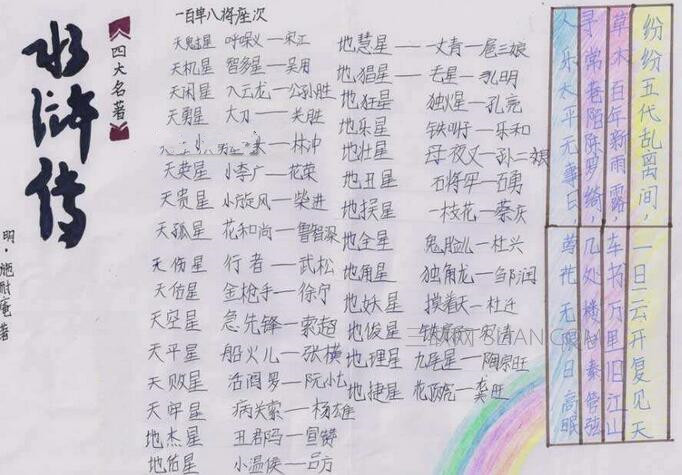 水浒传
四大名著
明·施耐庵著
一百单八将座次
天魁星 呼保义——宋江
天机星 智多星——吴用
天闲星 入云龙——公孙胜
天勇星 大刀——关胜
林冲
天英星 小李广——花荣
天贵星 小旋风——柴进
天孤星 花和尚——鲁智深
天伤星 行者——武松
天佑星 金枪手——徐宁
天空星 急先锋——索超
天平星 船火儿——张横
天败星 活阎罗——阮小七
天牢星 病关索——杨雄
地杰星 丑郡马——宣赞
地佑星 小温侯——吕方
地慧星——一丈青——扈三娘
地猖星——毛星——孔明
地狂星 独火星——孔亮
地乐星 铁叫子——乐和
地壮星 母夜叉——孙二娘
地丑星 石将军——石勇
地损星 一枝花——蔡庆
地全星 鬼脸儿——杜兴
地角星 独角龙——邹润
地妖星 摸着天——杜迁
地俊星 宋清
地理星 九尾星——陶宗旺
地捷星 花项虎——龚旺
纷纷五代乱离间，
一旦云开复见天
草木百年新雨露，
车书万里旧江山
寻常巷陌陈罗绮，
几处楼台奏管弦
人乐太平无事日，
莺花无限日高眠